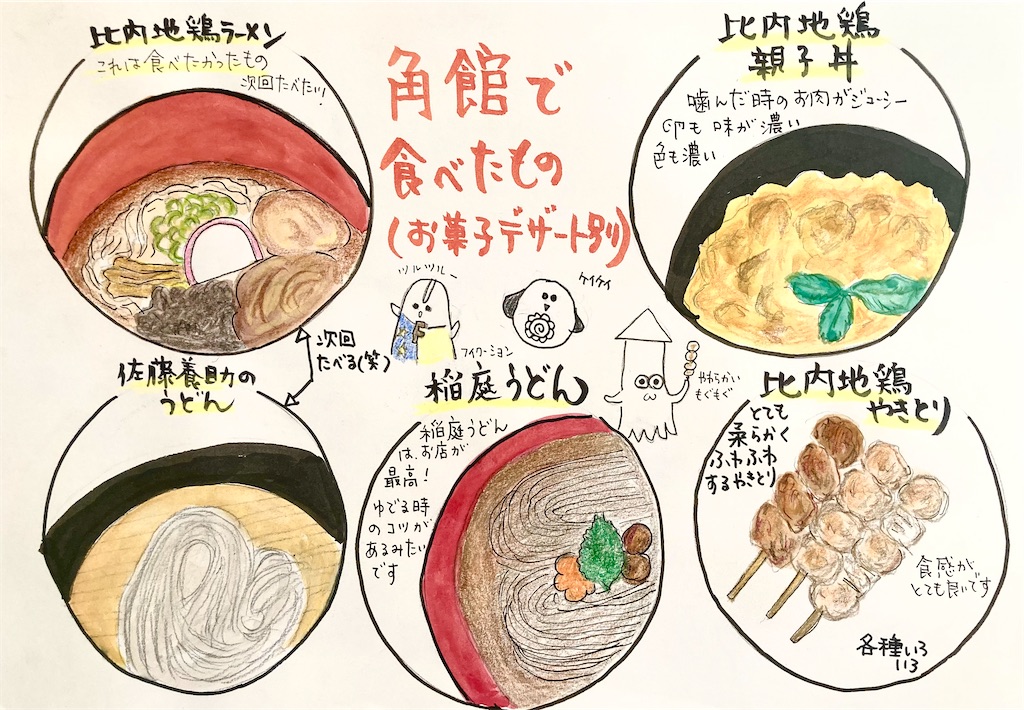 比内地鶏ラーメン
これは食べたかったもの
次回たべたい!
角館で
食べたもの
(お菓子デザート別)
比内地鶏
親子丼
噛んだ時のお肉がジューシー
卵も味が濃い
色も濃い
ツルツルー
ケイケイ
次回
たべる(笑)
佐藤養助の
うどん
稲庭うどん
稲庭うどん
は、お店が
最高!
ゆでる時
のコツが
あるみたい
です
やわらかい
もぐもぐ
比内地鶏
やきとり
とても
柔らかく
ふわふわ
するやきとり
食感が
とても良いです
各種いろ
いろ